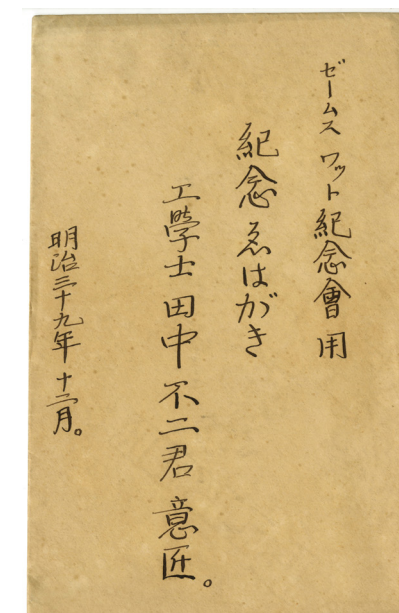 ゼームスワット紀念會用
紀念ゑはがき
工學士田中不二君意匠。
明治三十九年十二月。